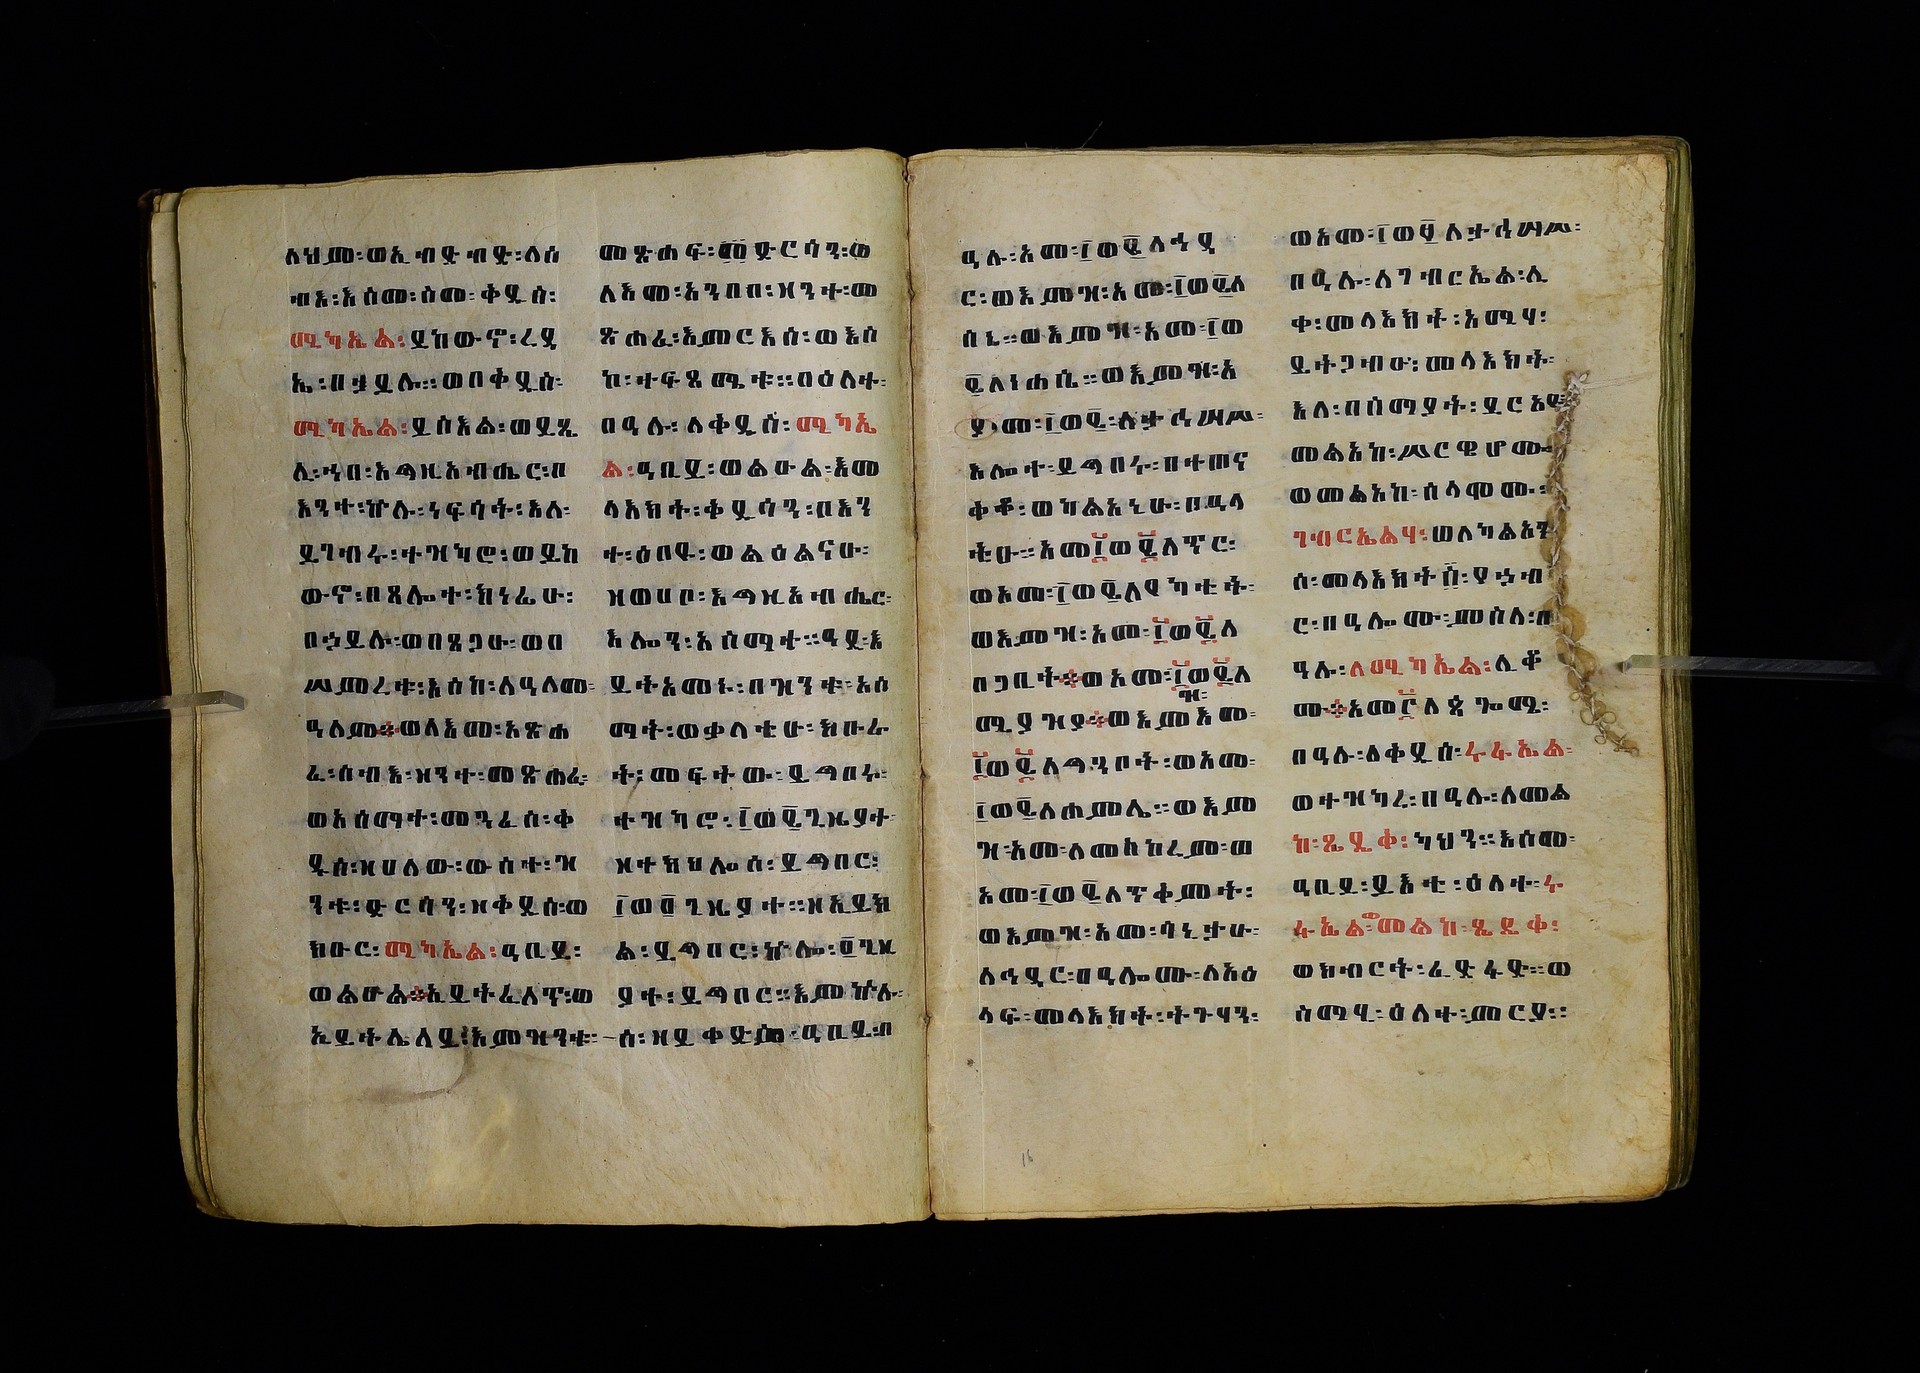 ለህሙ፡ወኢ ብፅ ብፅ፡ለሰ
ብእ፡እስመ፡ስመ፡ቅዱስ፡
ሚካኤል፡ይከውኖ፡ረዳ
ኤ፡በኃይሉ።ወበቅዱስ፡
ሚካኤል፡ይስእል፡ወይጼ
ሊ፡ኀበ፡እግዚአብሔር፡በ
እንተ፡ኵሉ፡ነፍሳት፡እለ፡
ይገብሩ፡ተዝካሮ፡ወይከ
ውኖ፡በጸሎተ፡ክነፊሁ፡
በኃይሉ፡ወበጸጋሁ፡ወበ
ሥምረተ፡አስከ፡ለዓለመ፡
ዓለም፡ወለእመ፡አጽሐ
ፈ፡ሰብእ፡ዘንተ፡መጽሐፈ፡
ወአስማተ፡መንፈስ፡ቅ
ዱስ፡ዘሀለው፡ውስተ፡ዝ
ንቱ፡ድርሳን፡ዘቅዱስ፡ወ
ክቡር፡ሚካኤል፡ዓቢይ፡
ወልዑል፡ኢይትፈለጥ፡ወ
ኢይትሌለይ፡እምዝንቱ፡
መጽሐፍ፡፡ድርሳን፡ወ
ለእመ፡አንበበ፡ዘንተ፡መ
ጽሐፈ፡እምርእሱ፡ወእስ
ከ፡ተፍጻሜቱ።በዕለተ፡
በዓሉ፡ለቅዱስ፡ሚካኤ
ል፡ዓቢይ፡ወልዑል፡እመ
ላእክት፡ቅዱሳን፡በእን
ተ፡ዕበዩ፡ወልዕልናሁ፡
ዘወሀቦ፡እግዚአብሔር፡
እሎን፡አስማተ።ዓዲ፡እ
ይትአመኑ፡በዝንቱ፡አስ
ማት፡ወቃላቲሁ፡ክቡራ
ት፡መፍትው፡ይግበሩ፡
ተዝካሮ፡፲ወ፪ጊዜያተ፡
ዘተክህሎ፡ሰ፡ይግበር፡
፲ወ፩ጊዜያተ።ዘኢይክ
ል፡ይግበር፡ኵሎ፡፩ጊዜ
ያተ፡ይግበር።እምኵሉ፡
ሰ፡ዘይቀድም፡ዓቢይ፡በ
ዓሉ፡አመ፡፲ወ፪ለኅዳ
ር፡ወእምዝ፡አመ፡፲ወ፪ለ
ሰኔ።ወእምዝ፡አመ፡፲ወ
፪ለነሐሴ።ወእምዝ፡አ
ያ፡መ፡፲ወ፪፡ለታኅሣሥ፡
እሎተ፡ይግበሩ፡በተጠና
ቅቆ፡ወካልአኒሁ፡በዓላ
ቲሁ።አመ፲ወ፪ለጥር፡
ወአመ፡፲ወ፪ለየካቲት፡
ወእምዝ፡አመ፡፲ወ፪ለ
በጋቢት፡ወአመ፡፲ወ፪ለ
ሚያዝያ፡ወእምዝ፡አመ፡
፲ወ፪ለግንቦት፡ወአመ፡
፲ወ፪ለሐምሌ።ወእም
ዝ፡አመ፡ለመስከረም፡ወ
አመ፡፲ወ፪ለጥቅምት፡
ወእምዝ፡አመ፡ሳኒታሁ፡
ለኅዳር፡በዓሎሙ፡ለአዕ
ላፍ፡መላእክት፡ትጉሃን፡
ወአመ፡፲ወ፱ለታኅሣሥ፡
በዓሉ፡ለገብርኤል፡ሊ
ቀ፡መላእክት፡አሜሃ፡
ይትጋብኡ፡መላእክት፡
እለ፡በሰማያት፡ይርአዩ
መልአከ፡ሥርዌሆሙ፡
ወመልአከ፡ሰላሞሙ፡
ገብርኤልሃ፡ወለካልአን
ሰ፡መላእክት፡፡ያኃብ
ር፡በዓሎሙ፡ምስለ፡በ
ዓሉ፡ለሚካኤል፡ሊቆ
ሙ፡አመ፫ለጳጕሜ፡
በዓሉ፡ለቅዱስ፡ሩፋኤል፡
ወተዝካረ፡በዓሉ፡ለመል
ከ፡ጼዴቅ፡ካህን።እስመ፡
ዓቢይ፡ይእቲ፡ዕለተ፡ሩ
ፋኤል፡መልከ፡ጼዴቅ፡
ወክብርት፡ፈድፋድ።ወ
ስማሂ፡ዕለተ፡ምርያ።